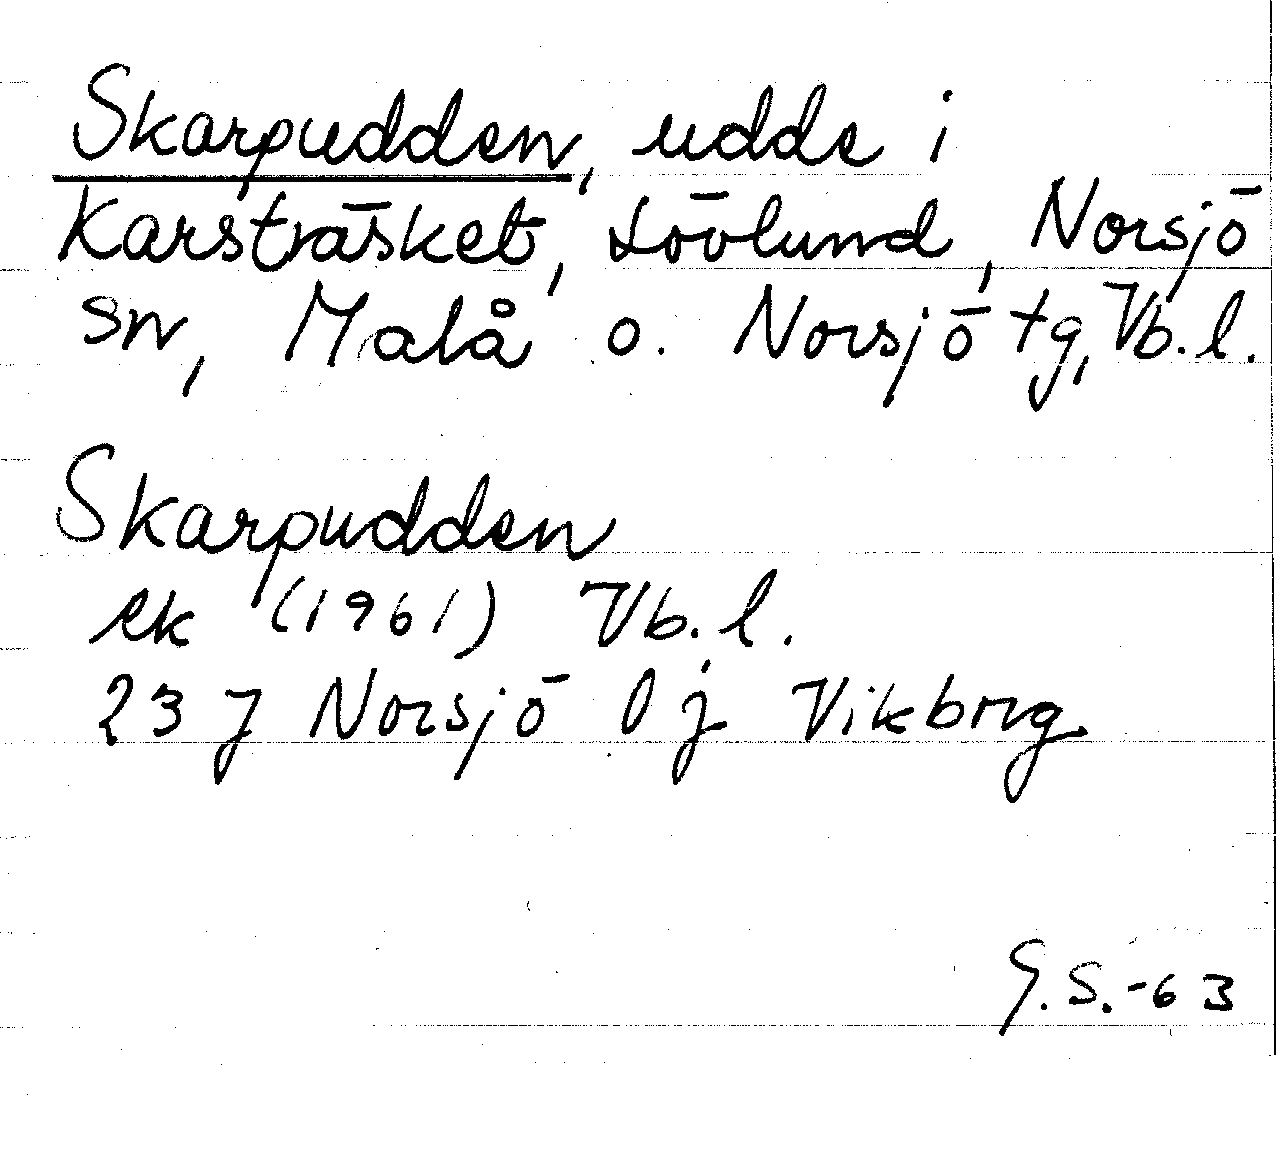 Skarpudden, udde i
Karsträsket, Lövlund, Norsjö
sn, Malå o. Norsjö tg, Vb. l.
Skarpudden
ek (1961) Vb. l.
23 J Norsjö l j Vikborg
G. S. -63